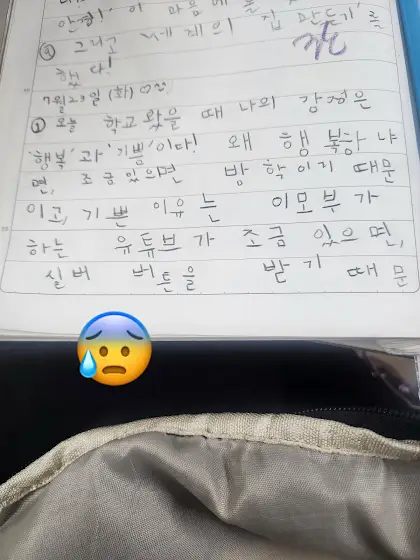 ② 그리고 세계의 집 만들기'를
했다!
7월 23일 (화)
① 오늘 학교 왔을 때 나의 감정은
'행복'과 '기쁨'이다! 왜 행복하냐
면, 조금있으면 방학이기 때문
이고, 기쁜 이유는 이모부가
하는 유튜브가 조금 있으면,
실버 버튼을 받기 때문